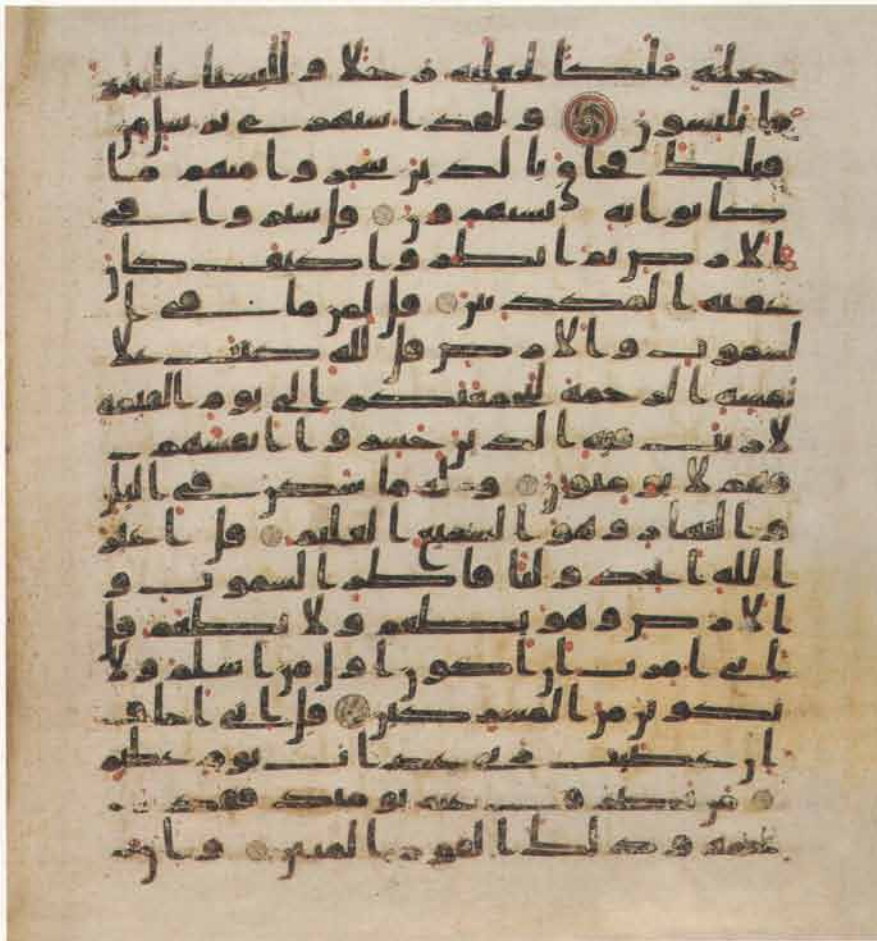 جعلنه ملكا لجعلنه رجلا و للبسنا عليهم
ما يلبسون و لقد استهزى برسل من
قبلك فحاق بالذين سخروا منهم ما
كانوا به يستهزون قل سيروا في
الارض ثم انظروا كيف كان
عقبة المكذبين قل لمن ما في ا
لسموت والارض قل لله كتب علا
نفسه الرحمة ليجمعنكم الى يوم القيمة
لا ريب فيه الذين خسروا انفسهم
فهم لا يومنون وله ما سكن في اليل
والنهار وهو السميع العليم قل اغير
الله اتخذ وليا فاطر السموت و
الارض وهو يطعم ولا يطعم قل
اني امرت ان اكون اول من اسلم ولا
تكونن من المشركين قل اني اخاف
ان عصيت ربي عذاب يوم عظيم
من يصرف عنه يومئذ فقد
وذلك الفوز المبين وان